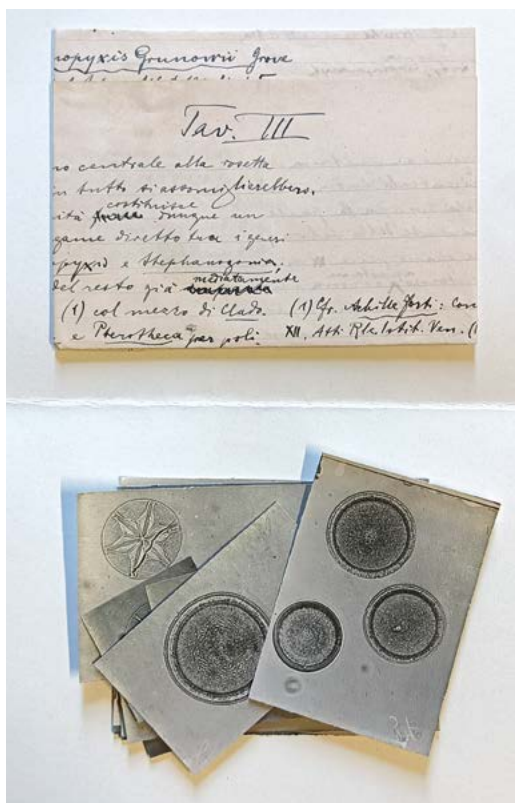 nopyxis Grunowii Grove
Tav. III
no centrale alla rosetta
in tutto si assomiglierebbero,
costituisce
ità dunque un
game diretto tra i generi
opyxis e Stephanogonia,
mediatamente
del resto già
(1) col mezzo di Clado. (1) Cfr. Achille Forti: Con
e Pterotheca per poli XII, Atti R. Istit. Ven. (